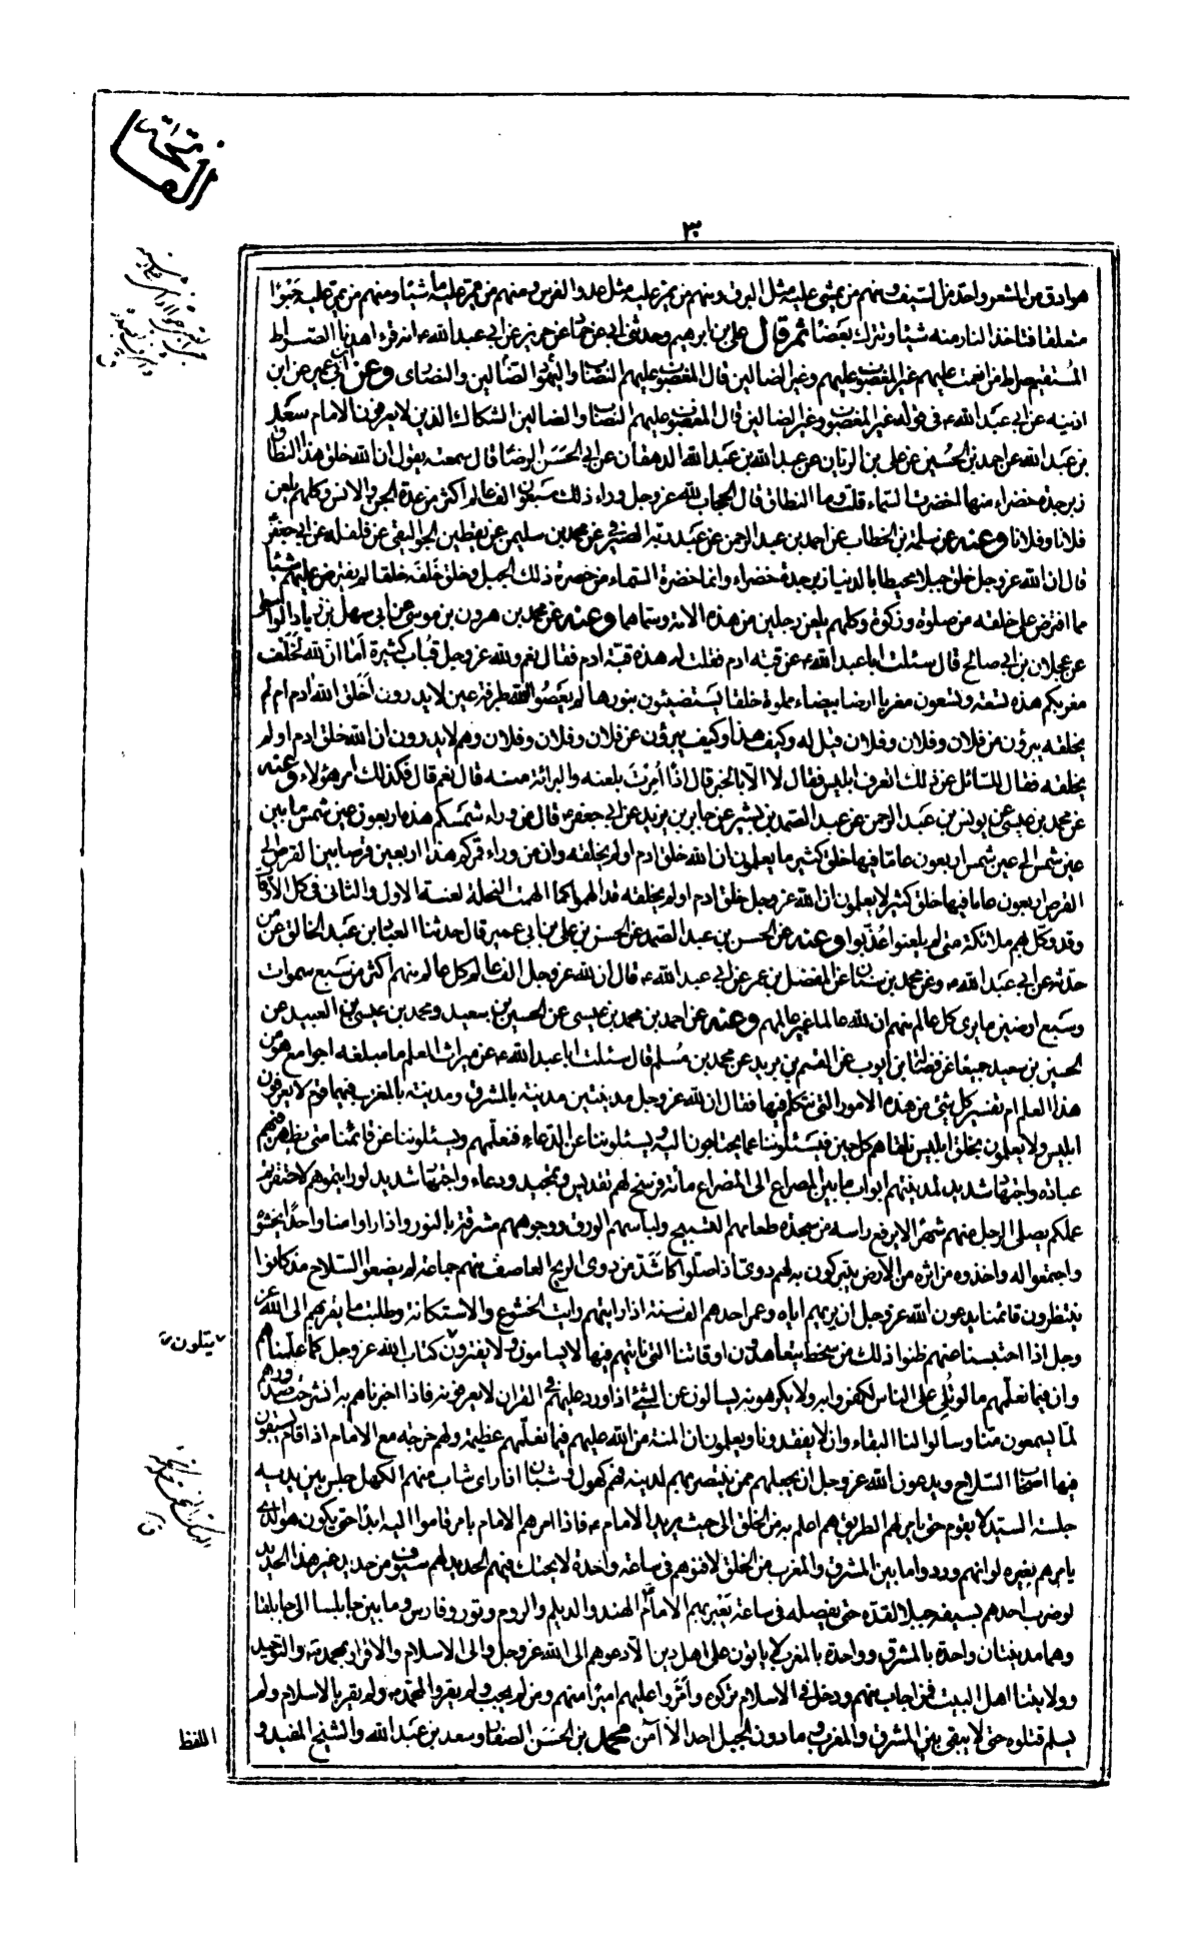 الفاتحة
٣٠
هو ادق من الشعر واحد من السيف فمنهم من يمشي عليه مثل البرق ومنهم من يمر عليه مثل عدو الفرس ومنهم من يمر عليه ماشيا ومنهم من يمر عليه حبوا
متعلقا فتاخذ النار منه شيئا وتترك بعضا ثم قال علي بن ابرهيم وحدثني ابي عن حماد عن حريز عن ابي عبد الله ع انه قرء اهدنا الصراط
المستقيم صراط من انعمت عليهم غير المغضوب عليهم وغير الضالين قال المغضوب عليهم النصاب والضالين اليهود والنصارى وعن ابن ابي عمير عن ابن
اذينه عن ابي عبد الله ع في قوله غير المغضوب وغير الضالين قال المغضوب عليهم النصاب والضالين الشكاك الذين لا يعرفون الامام سعد
بن عبد الله عن احمد بن الحسين عن علي بن الريان عن عبد الله بن عبد الله الدهقان عن ابي الحسن الرضا قال سمعته يقول ان الله خلق هذا النطاق
زبرجدة خضراء منها اخضرت السماء قلت وما النطاق قال الحجاب لله عز وجل وراء ذلك سبعون الف عالم اكثر من عدة الجن والانس وكلهم يلعن
فلانا وفلانا وعنه عن سلمة بن الخطاب عن احمد بن عبد الرحمن عن عبد ربه الصيرفي عن محمد بن سليمن عن يقطين الجواليقي عن قلقلة عن ابي جعفر
قال ان الله عز وجل خلق جبلا محيطا بالدنيا زبرجدة خضراء وانما خضرة السماء من خضرة ذلك الجبل وخلق خلفه خلقا لم يفترض عليهم شيئا
مما افترض على خلقه من صلوة وزكوة وكلهم يلعن رجلين من هذه الامة وسماهما وعنه عن محمد بن هرون بن موسى عن ابي سهل بن زياد الواسطي
عن عجلان بن ابي صالح قال سئلت ابا عبد الله ع عن قبة ادم فقلت له هذه قبة ادم فقال نعم ولله عز وجل قباب كثيرة اما ان الله لخلف
مغربكم هذه تسعة وتسعون مغربا ارضا بيضاء مملوة خلقا يستضيئون بنورها لم يعصوا الله طرفة عين لا يدرون أخلق الله ادم ام لم
يخلقه يبرؤن من فلان وفلان وفلان قيل له وكيف هذا وكيف يبرؤن عن فلان وفلان وفلان وهم لا يدرون ان الله خلق ادم او لم
يخلقه فقال للسائل عن ذلك اتعرف ابليس فقال لا الا بالخبر قال اذا أمرت بلعنه والبرائة منه قال نعم قال فكذلك امر هؤلاء وعنه
عن محمد بن عيسى عن يونس بن عبد الرحمن عن عبد الصمد بن بشير عن جابر بن يزيد عن ابي جعفر ع قال من وراء شمسكم هذه اربعون عين شمس ما بين
عين شمس الى عين شمس اربعون عاما فيها خلق كثير ما يعلمون ان الله خلق ادم او لم يخلقه وان من وراء قمركم هذا اربعين قرصا بين القرص الى
القرص اربعون عاما فيها خلق كثير لا يعلمون ان الله عز وجل خلق ادم او لم يخلقه قد الهموا كما الهمت النحلة لعنة الاول والثاني في كل الاوقات
وقد وكل بهم ملائكة متى لم يلعنوا عذبوا وعنه عن الحسن بن عبد الصمد عن الحسن بن علي بن ابي عمير قال حدثنا العباس بن عبد الخالق عن من
حدثه عن ابي عبد الله ع وعن محمد بن سنان عن المفضل بن عمر عن ابي عبد الله ع قال ان لله عز وجل الف عالم كل عالم منهم اكثر من سبع سموات
وسبع ارضين ما يرى كل عالم منهم ان لله عالما غير عالمهم وعنه عن احمد بن محمد بن عيسى عن الحسين بن سعيد ومحمد بن عيسى بن العبيد عن
الحسين بن سعيد جميعا عن فضالة بن ايوب عن القسم بن بريد عن محمد بن مسلم قال سئلت ابا عبد الله ع عن ميراث العلم ما مبلغه اجوامع هو من
هذا العلم ام تفسير كل شئ من هذه الامور التي نتكلم فيها فقال ان لله عز وجل مدينتين مدينة بالمشرق ومدينة بالمغرب فيهما قوم لا يعرفون
ابليس ولا يعلمون بخلق ابليس نلقاهم كل حين فيسئلوننا عما يحتاجون اليه ويسئلوننا عن الدعاء فنعلمهم ويسئلوننا عن قائمنا متى يظهر فيهم
عبادة واجتهاد شديد لمدينتهم ابواب ما بين المصراع الى المصراع مائة فرسخ لهم تقديس وتمجيد ودعاء واجتهاد شديد لو رايتموهم لاحتقرتم
عملكم يصلي الرجل منهم شهرا لا يرفع راسه من سجدة طعامهم التسبيح ولباسهم الورق ووجوههم مشرقة بالنور واذا راوا منا واحدا احتوشوه
واجتمعوا له واخذوه من اثره من الارض يتبركون به لهم دوي اذا صلوا كاشد من دوي الريح العاصف منهم جماعة لم يضعوا السلاح مذ كانوا
ينتظرون قائمنا يدعون الله عز وجل ان يريهم اياه وعمر احدهم الف سنة اذا رايتهم رايت الخشوع والاستكانة وطلب ما يقربهم الى الله عز
وجل اذا احتبسنا عنهم ظنوا ذلك من سخط يتعاهدون اوقاتنا التي ناتيهم فيها لا يسامون ولا يفترون كتاب الله عز وجل كما علمناهم
وان فيما نعلمهم ما لو تلي على الناس لكفروا به ولا يكرهونه يسالون عن الشئ اذا ورد عليهم في القران لا يعرفونه فاذا اخبرناهم به انشرحت صدورهم
لما يسمعون منا وسالوا لنا البقاء وان لا يفقدونا ويعلمون ان المنة من الله عليهم فيما نعلمهم عظيمة ولهم خرجة مع الامام اذا قام يسبقون
فيها اصحاب السلاح ويدعون الله عز وجل ان يجعلهم ممن ينتصر بهم لدينه فهم كهول وشبان اذا راى شاب منهم الكهل جلس بين يديه
جلسة السيد لا يقوم حتى يامره لهم الطريق هم اعلم به من الخلق الى حيث يريد الامام ع فاذا امرهم الامام بامر قاموا اليه ابدا حتى يكون هو الذي
يامرهم بغيره لو انهم وردوا ما بين المشرق والمغرب من الخلق لافنوهم في ساعة واحدة لا يحتك فيهم الحديد لهم سيوف من حديد غير هذا الحديد
لو ضرب احدهم بسيفه جبلا لقده حتى يفصله في ساعة تغير بهم الامام الهند والديلم والروم وتور وفارس وما بين جابلسا الى جابلقا
وهما مدينتان واحدة بالمشرق وواحدة بالمغرب لا ياتون على اهل دين الا دعوهم الى الله عز وجل والى الاسلام والاقرار بمحمد ص والتوحيد
وولايتنا اهل البيت فمن اجاب منهم ودخل في الاسلام تركوه وامّروا عليهم اميرا منهم ومن لم يجب ولم يقر بمحمد ص ولم يقر بالاسلام ولم
يسلم قتلوه حتى لا يبقى بين المشرق والمغرب وما دون الجبل احد الا آمن محمد بن الحسن الصفار وسعد بن عبد الله والشيخ المفيد و
يتلون
اللفظ